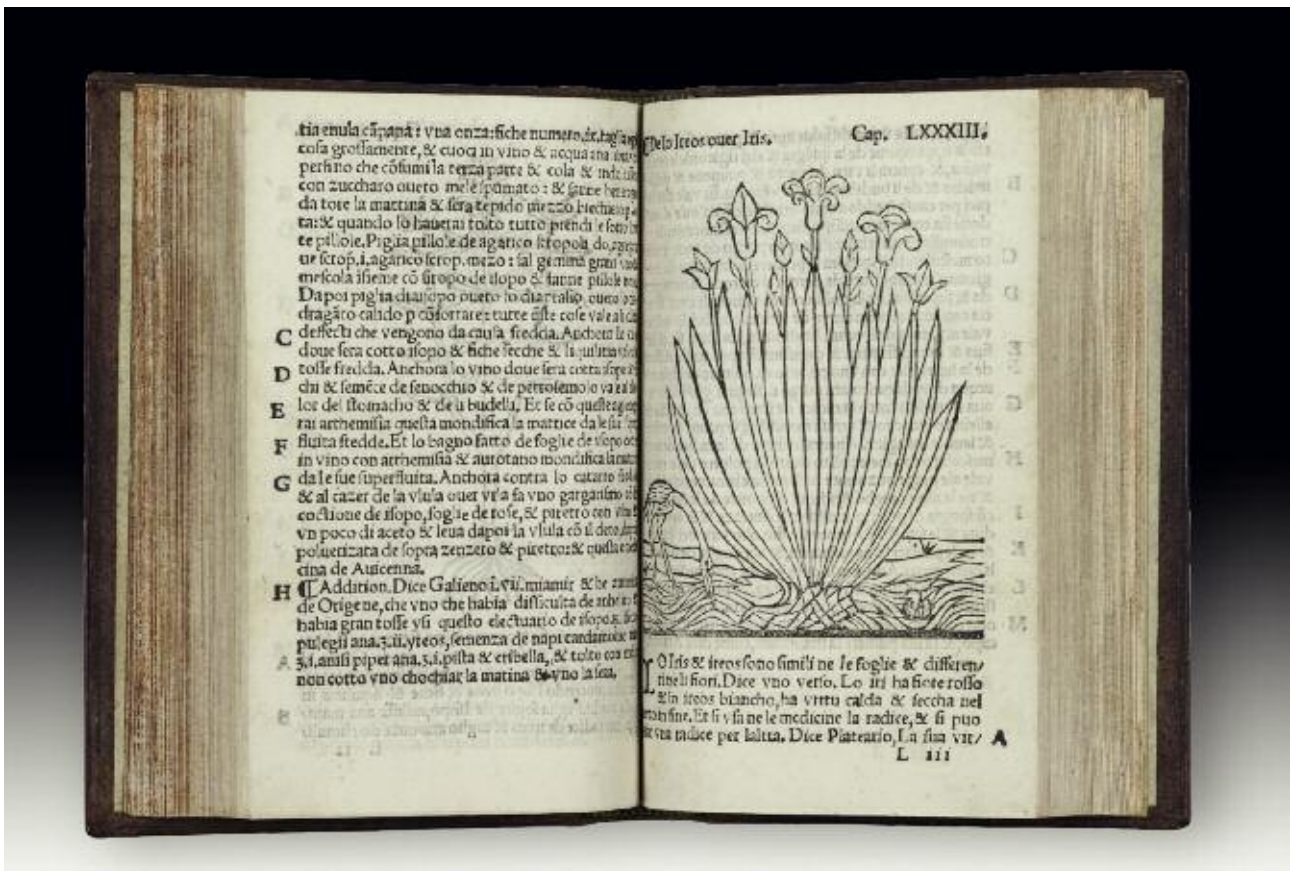 tia enula cãpana: vna onza: fiche numero.ix.
cosa grossamente, & cuoci in vino & acqua ana
persino che cõsumi la terza parte & cola &
con zuccharo oueto mele spumato: & fanne
da tore la mattina & sera tepido mezzo
ta: & quando lo hauerai tolto tutto prendi le
te pillole. Piglia pillole de agarico scropoli do,
ue scrop. i. agarico scrop. mezo: sal gemma grani
mescola isieme cõ siropo de isopo & fanne pillole
Dapoi piglia ouero lo
dragãto calido p cõfortare: tutte q̃ste cose vale
C deffecti che vengono da causa fredda. Anchora
doue sera cotto isopo & fiche secche &
D tosse fredda. Anchora lo vino doue sera cotto
chi & semẽce de fenocchio & de petrosemolo vale
E lor del stomacho & de li budelli. Et se cõ queste
rai arthemisia questa mondifica la mattice da le sue
F fluita fredde. Et lo bagno fatto de foglie de isopo
in vino con arthemisia & aurotano mondifica la
G da le sue superfluita. Anchora contra lo catarro
& al cazer de la vlula ouer vua fa vno gargarismo
coctione de isopo, foglie de rose, & piretro con
vn poco di aceto & leua dapoi la vlula cõ il deto,
poluerizata de sopra zenzero & piretro: & questa
cina de Auicenna.
H ¶ Addition. Dice Galieno i. vii. miamir &
de Origene, che vno che habia difficulta de
habia gran tosse vsi questo electuario de isopo &
pulegii ana.ʒ.ii. yreos, semenza de napi cardamomi
ʒ.i. anisi piper ana.ʒ.i. pista & cribella, & tolto con
non cotto vno chochiar la matina & vno la sera.
¶ Delo Ireos ouer Iris. Cap. LXXXIII.
LO Iris & ireos sono simili ne le foglie & differen/
ti ne li fiori. Dice vno verso. Lo iri ha fiore rosso
& lo ireos biancho, ha virtu calda & seccha nel
fine. Et si vsa ne le medicine la radice, & si puo
vna radice per laltra. Dice Plateario, La sua vir/ A
L iii